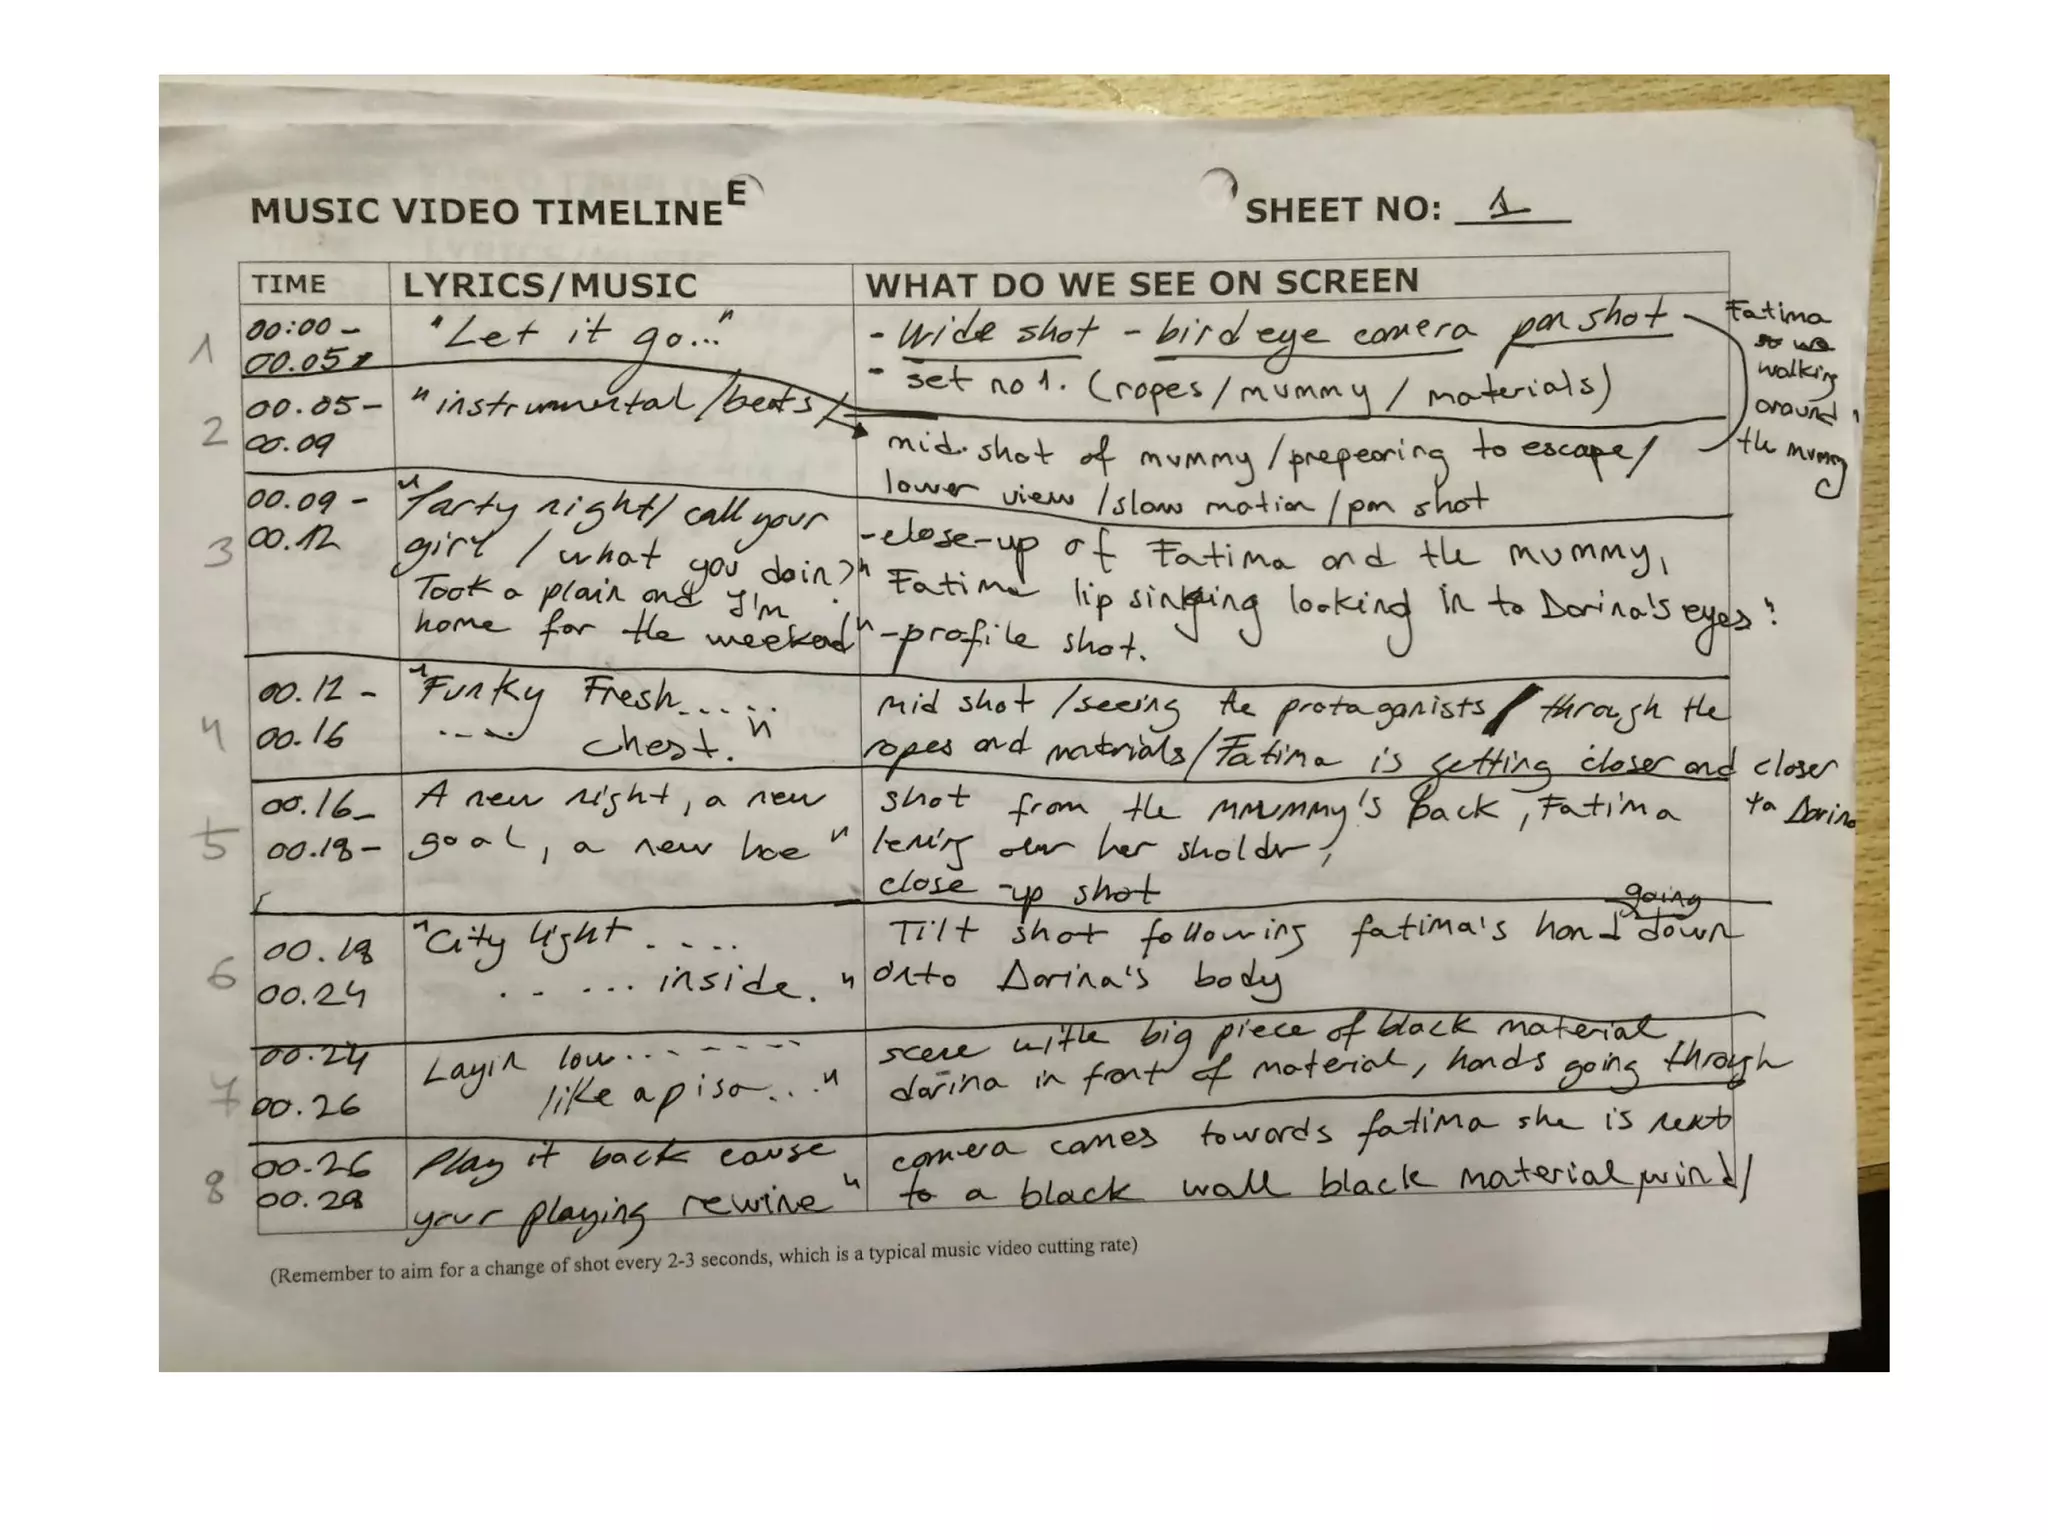 MUSIC VIDEO TIMELINE E
SHEET NO: 1
TIME
LYRICS/MUSIC
WHAT DO WE SEE ON SCREEN
1
00:00 -
00.05
"Let it go..."
- wide shot - bird eye camera pan shot
- set no 1. (ropes/mummy/materials)
Fatima
walking
around
the mummy
2
00.05-
00.09
"instrumental/beats/
mid. shot of mummy/prepearing to escape/
lower view/slow motion/pan shot
3
00.09 -
00.12
"Party night/ call your
girl / what you doin?"
Took a plain and I'm
home for the weekend"
-close-up of Fatima and the mummy,
Fatima lip singing looking in to Dorina's eyes"
-profile shot.
4
00.12 -
00.16
"Funky Fresh.....
.... chest."
mid shot /seeing the protagonists/ through the
ropes and matrials/Fatima is getting closer and closer
to Dorina
5
00.16-
00.18-
A new night, a new
goal, a new hoe"
shot from the mmummy's back, Fatima
lening over her sholdr,
close-up shot
6
00.18
00.24
"City light ....
..... inside."
Tilt shot following fatima's hand going down
onto Dorina's body
7
00.24
00.26
Layin low.......
like a piso..."
scene withe big piece of black material
dorina in front of material, hands going through
8
00.26
00.28
Play it back cause
your playing rewine"
camera comes towards fatima she is next
to a black wall black material wind/
(Remember to aim for a change of shot every 2-3 seconds, which is a typical music video cutting rate)